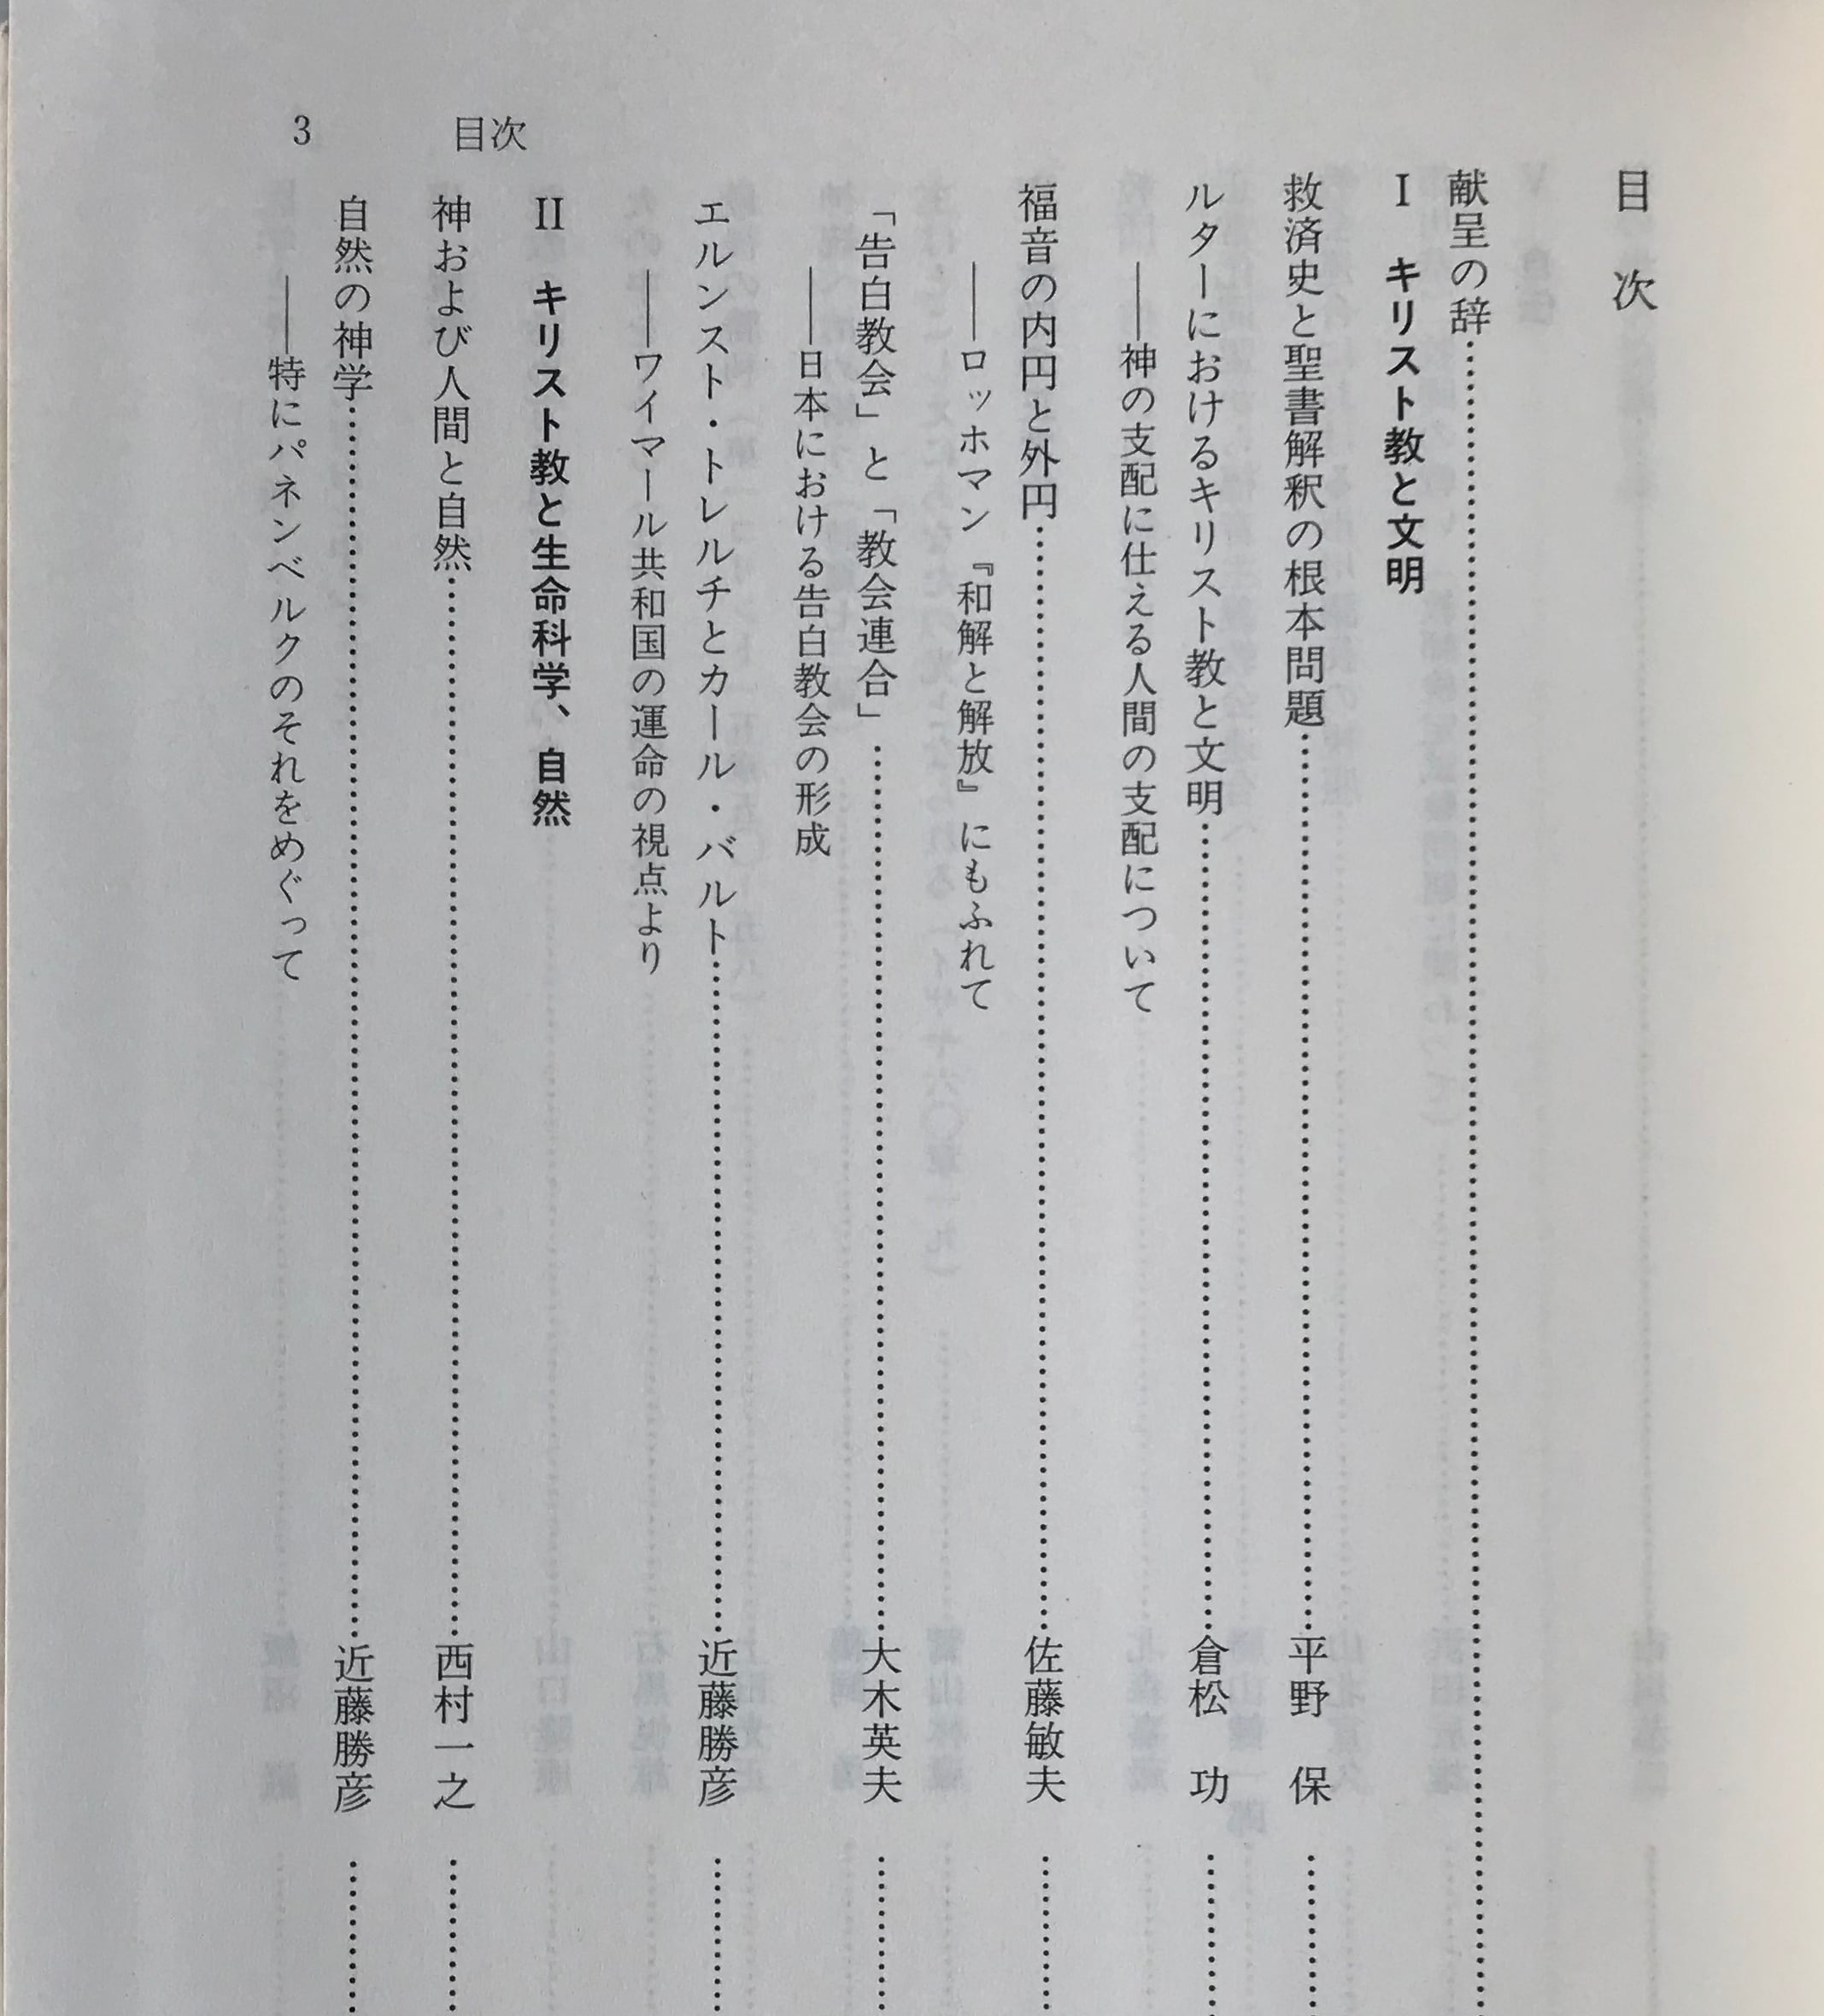 目次
献呈の辞……
I　キリスト教と文明
救済史と聖書解釈の根本問題……平野　保……
ルターにおけるキリスト教と文明……倉松　功……
――神の支配に仕える人間の支配について
福音の内円と外円……佐藤敏夫……
――ロッホマン『和解と解放』にもふれて
「告白教会」と「教会連合」……大木英夫……
――日本における告白教会の形成
エルンスト・トレルチとカール・バルト……近藤勝彦……
――ワイマール共和国の運命の視点より
II　キリスト教と生命科学、自然
神および人間と自然……西村一之……
自然の神学……近藤勝彦……
――特にパネンベルクのそれをめぐって
目次
3